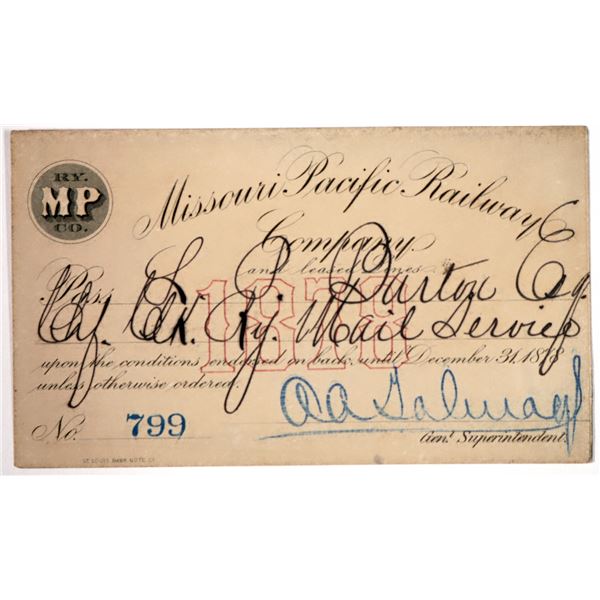 RY.
MP
CO.
Missouri Pacific Railway
Company
and leased Lines
Pass L. P. Barton Esq.
Chf. Clk. Ry. Mail Service
1878
upon the conditions endorsed on back, until December 31, 1878
unless otherwise ordered.
No. 799
A A Talmage
Genl. Superintendent.
ST. LOUIS BANK NOTE CO.